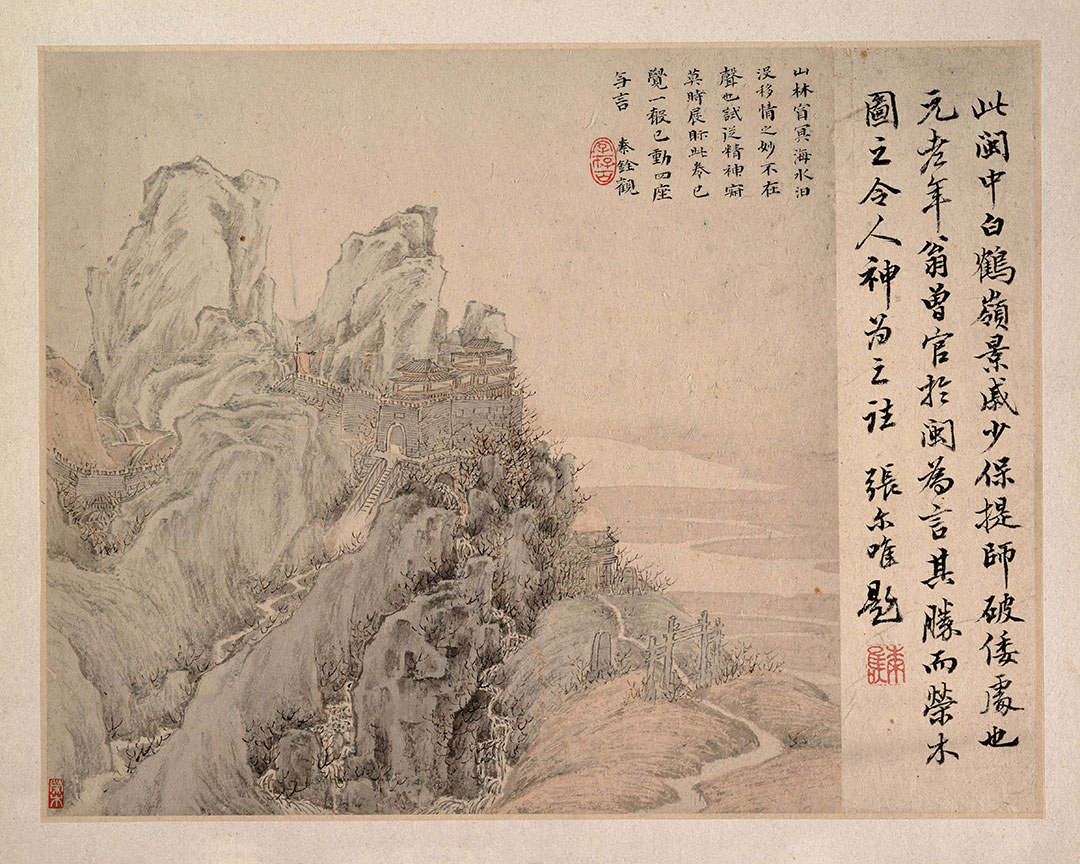 此閩中白鶴嶺景戚少保提師破倭處也
元老年翁曾官於閩為言其勝而榮木
圖之令人神為之詿 張尔唯題
山林窅冥海水汨
沒移情之妙不在
聲也試從精神
莫時展眎此卷已
覺一般已動四座
年言 秦銓觀
榮木